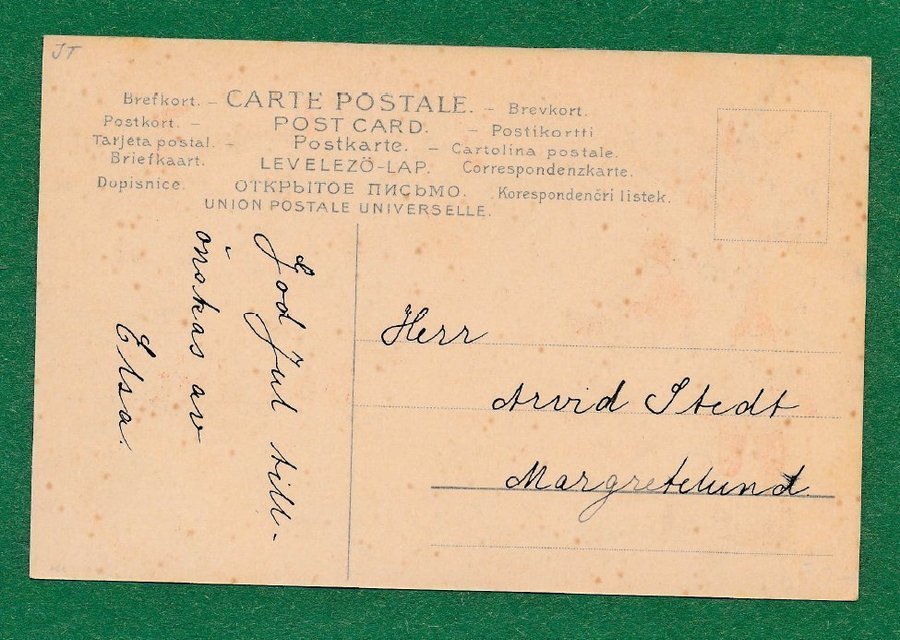 JT
Brefkort. – CARTE POSTALE. – Brevkort.
Postkort. – POST CARD. – Postikortti
Tarjeta postal. – Postkarte. – Cartolina postale.
Briefkaart. LEVELEZŐ-LAP. Correspondenzkarte.
Dopisnice. ОТКРЫТОЕ ПИСЬМО. Korespondenčri listek.
UNION POSTALE UNIVERSELLE.
God Jul till-
önskas av
Elsa.
Herr
Arvid Stedt
Margretelund.